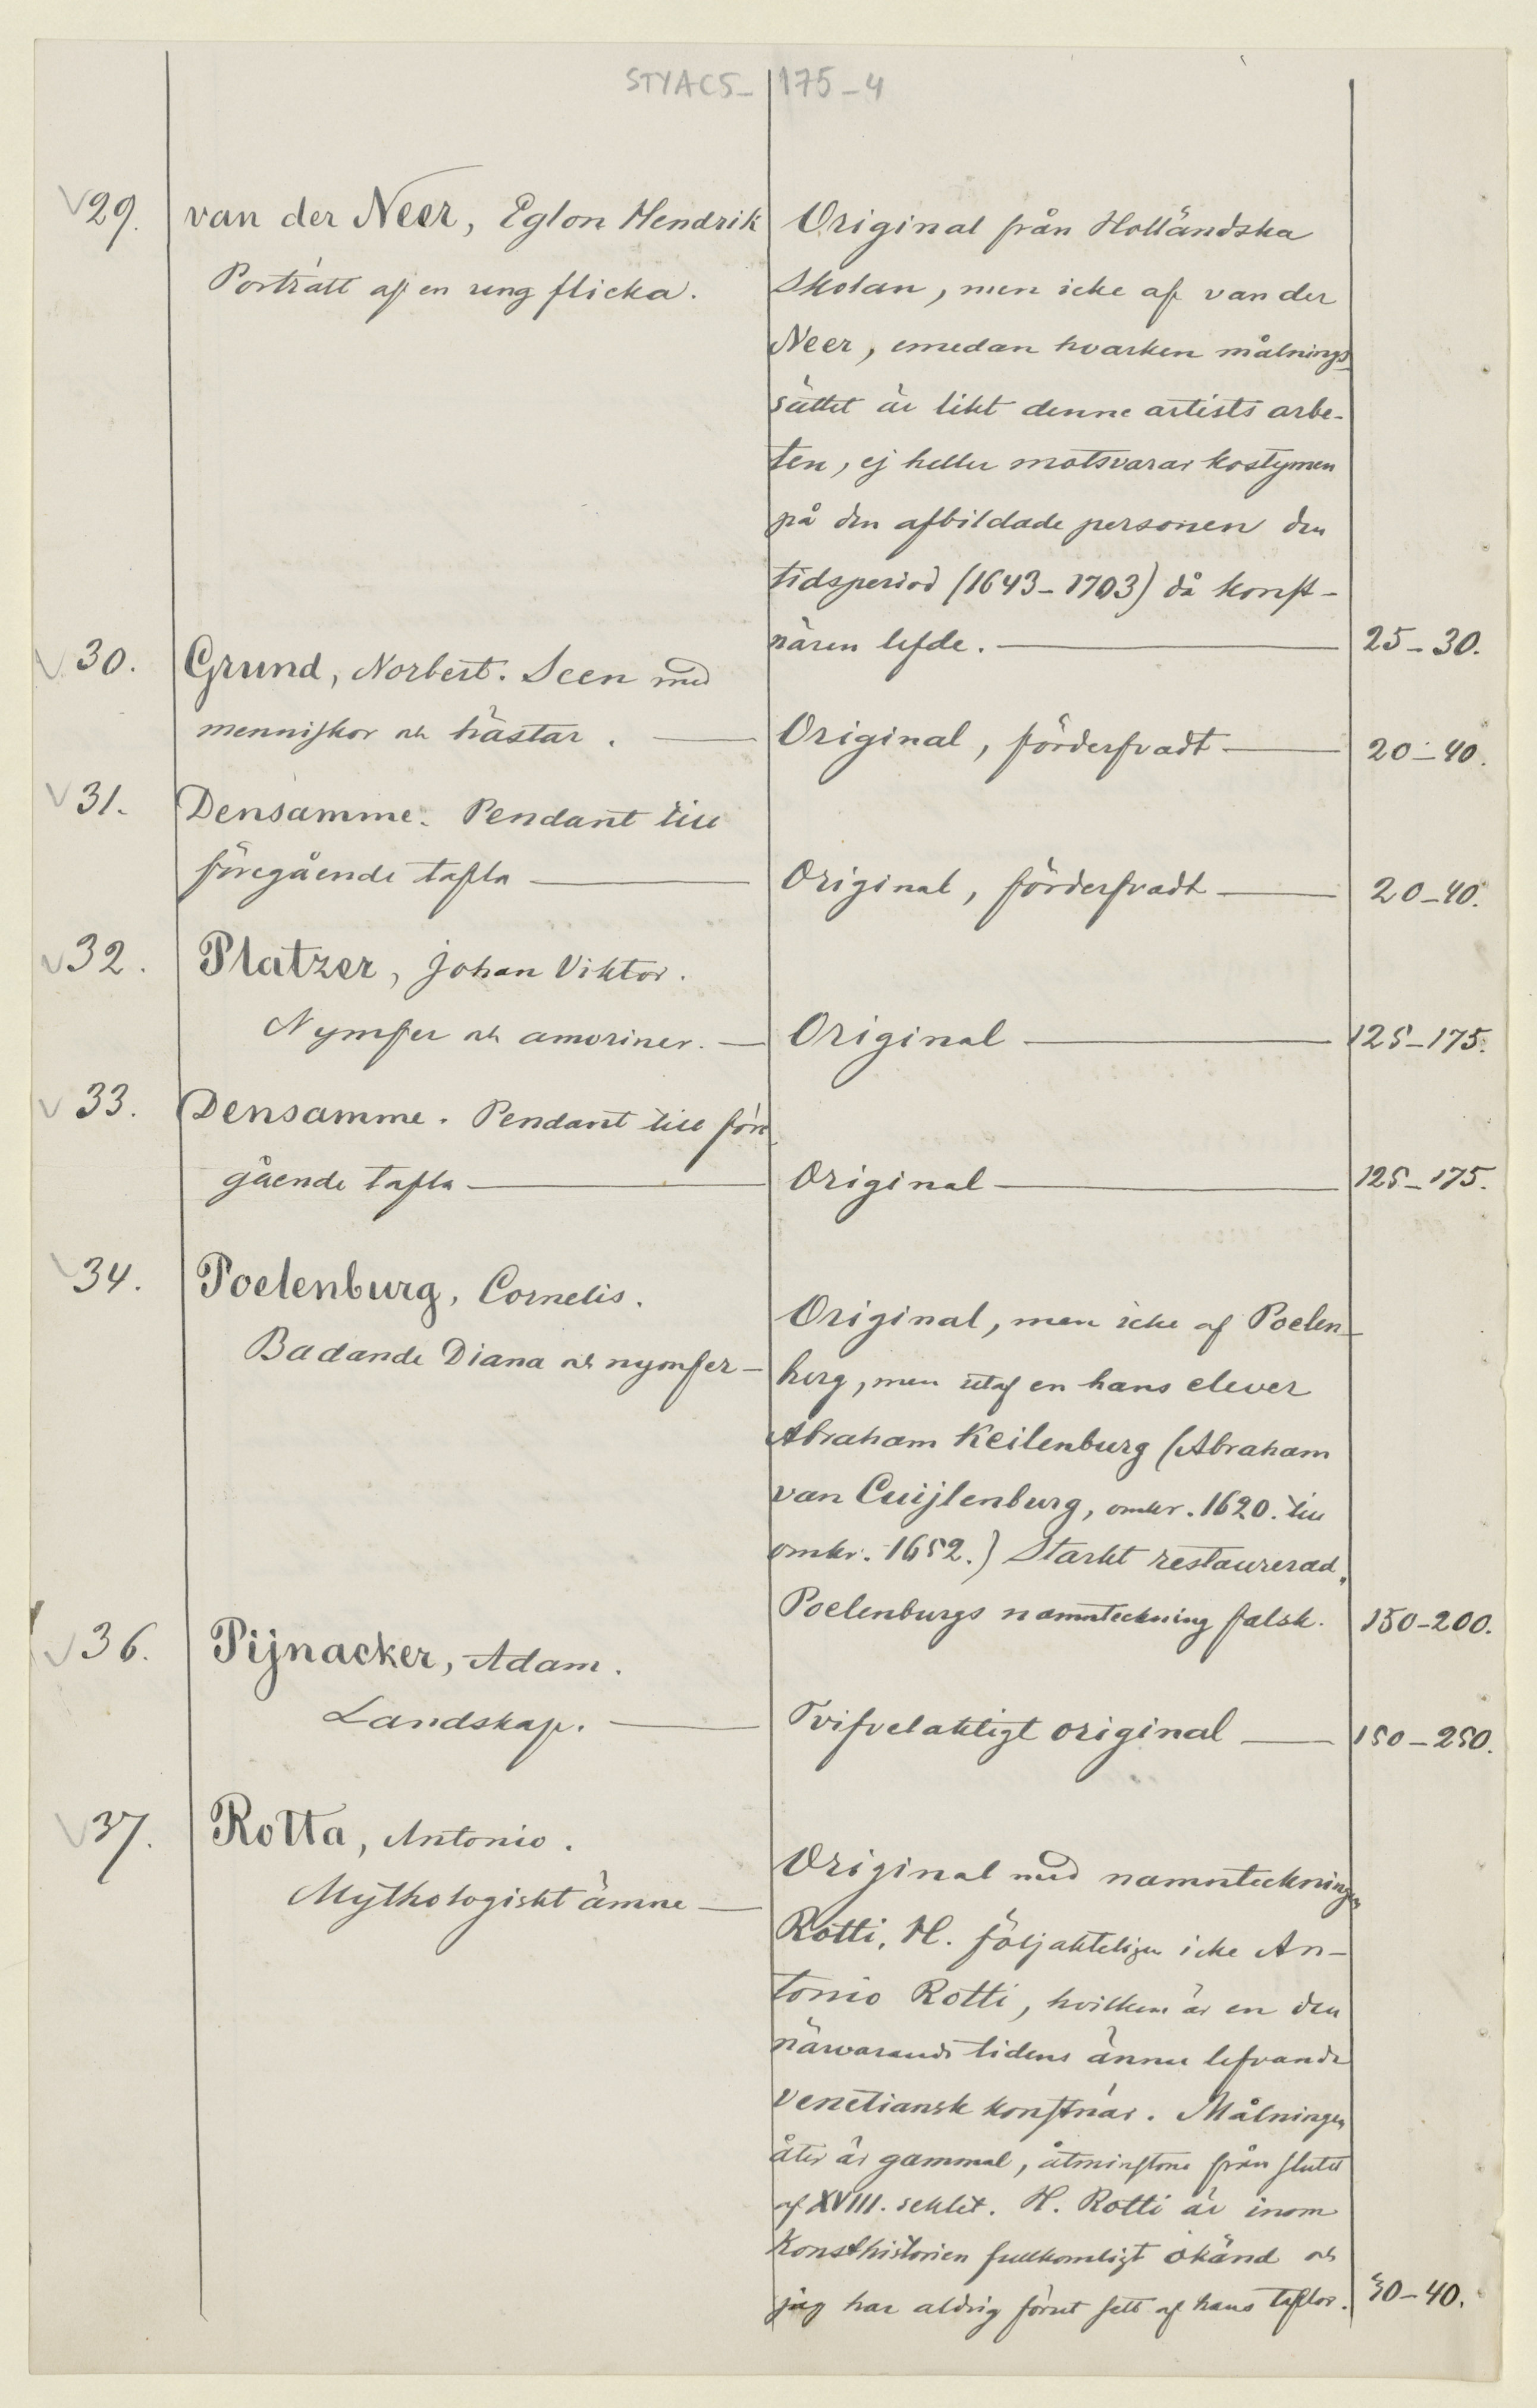 STYACS_175_4
29. van der Neer, Eglon Hendrik
Porträtt af en ung flicka.
Original från Holländska
Skolan, men icke af van der
Neer, emedan hvarken målnings-
sättet är likt denne artists arbe-
ten, ej heller motsvarar kostymen
på den afbildade personen den
tidsperiod (1643_1703) då konst-
nären lefde. — 25_30.
30. Grund, Norbert. Scen med
menniskor och hästar. —
Original, förderfvadt — 20_40.
31. Densamme. Pendant till
föregående tafla —
Original, förderfvadt — 20_40.
32. Platzer, Johan Viktor.
Nymfer och amoriner. —
Original — 125_175.
33. Densamme. Pendant till före-
gående tafla —
Original — 125_175.
34. Poelenburg, Cornelis.
Badande Diana och nymfer —
Original, men icke af Poelen-
berg, men utaf en hans elever
Abraham Keilenburg (Abraham
van Cuijlenburg, omkr. 1620. till
omkr. 1652.) Starkt restaurerad,
Poelenburgs namnteckning falsk. 150-200.
36. Pijnacker, Adam.
Landskap. —
Tvifvelaktigt original — 150-250.
37. Rotta, Antonio.
Mythologiskt ämne —
Original med namnteckningen
Rotti, H. följaktligen icke An-
tonio Rotti, hvilken är en den
närvarande tidens ännu lefvande
venetiansk konstnär. Målningen
åter är gammal, åtminstone från slutet
af XVIII. seklet. H. Rotti är inom
Konsthistorien fullkomligt okänd och
jag har aldrig förut sett af hans taflor. 30-40.